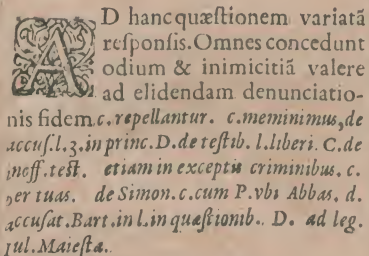 AD hanc quæstionem variatã
responsis. Omnes concedunt
odium & inimicitiã valere
ad elidendam denunciatio-
nis fidem c. repellantur. c. meminimus, de
accus. l. 3. in princ. D. de testib. l. liberi. C. de
inoff. test. etiam in exceptis criminibus. c.
per tuas. de Simon. c. cum P. vbi Abbas. d.
accusat. Bart. in l. in quæstionib. D. ad leg.
Iul. Maiesta.